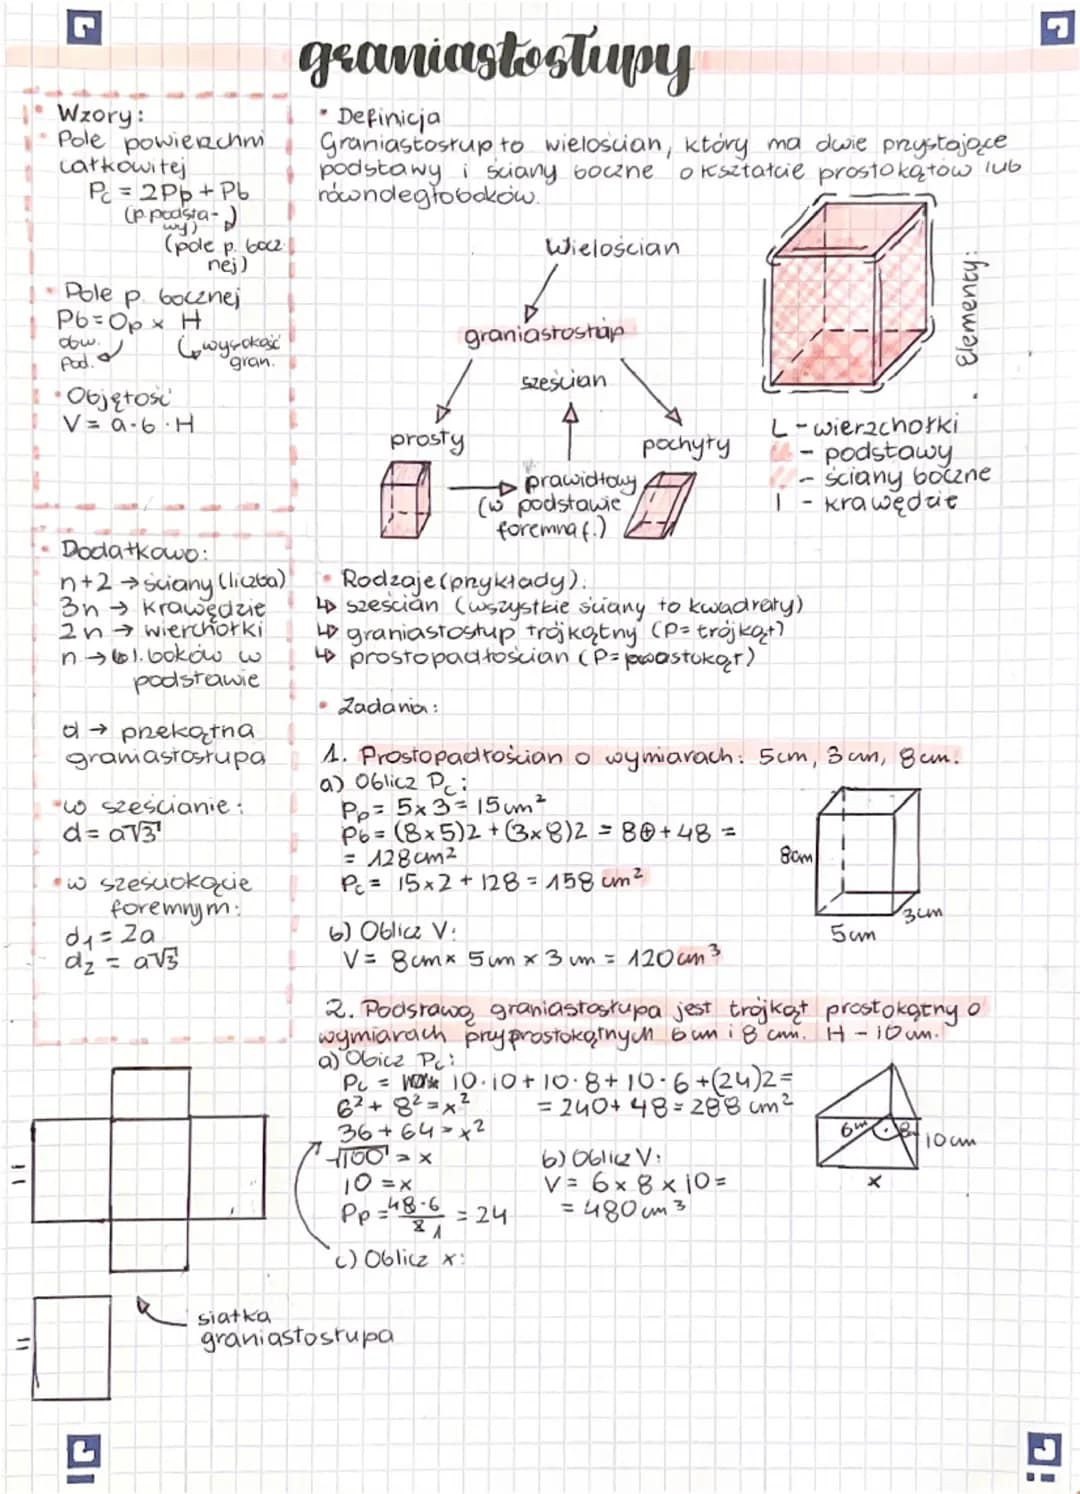 graniastosłupy
Wzory:
Pole powierzchni
całkowitej
Pc = 2Pp + Pb
(p. podsta-
wy)
(pole p. bocz
nej)
Pole p. bocznej
Pb = Op x H
obw.
pod.
wysokość
gran.
Objętość
V = a·b·H
Dodatkowo:
n+2 → ściany (liczba)
3n → krawędzie
2n → wierchołki
n → l. boków w
podstawie
d → przekątna
graniastosłupa
w sześcianie:
d = a√3
w sześciokącie
foremnym:
d₁ = 2a
d₂ = a√3
Definicja
Graniastosłup to wielościan, który ma dwie przystające
podstawy i ściany boczne o kształcie prostokątów lub
równoległoboków.
Wielościan
graniastosłup
sześcian
prosty
pochyły
prawidłowy
(w podstawie
foremna f.)
Elementy:
L - wierzchołki
- podstawy
- ściany boczne
| - krawędzie
Rodzaje (przykłady):
↳ sześcian (wszystkie ściany to kwadraty)
↳ graniastosłup trójkątny (P= trójkąt)
↳ prostopadłościan (P= prostokąt)
Zadania:
1. Prostopadłościan o wymiarach: 5cm, 3cm, 8cm.
a) Oblicz Pc:
Pp = 5x3 = 15cm²
Pb = (8x5)2 + (3x8)2 = 80 + 48 =
= 128cm²
Pc = 15x2 + 128 = 158 cm²
8cm
3cm
5cm
b) Oblicz V:
V = 8cm x 5cm x 3cm = 120cm³
2. Podstawą graniastosłupa jest trójkąt prostokątny o
wymiarach przyprostokątnych 6cm i 8cm. H - 10cm.
a) Obicz Pc:
Pc = 10·10 + 10·8 + 10·6 + (24)2 =
= 240 + 48 = 288 cm²
6² + 8² = x²
36 + 64 = x²
√100 = x
10 = x
Pp = 48·6/8 1 = 24
b) Oblicz V:
V = 6 x 8 x 10 =
= 480 cm³
c) Oblicz x:
6cm
8cm
10cm
x
siatka
graniastosłupa